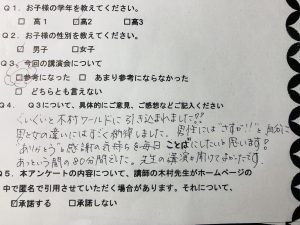 Q1. お子様の学年を教えてください。
□高1 ☑高2 □高3
Q2. お子様の性別を教えてください。
☑男子 □女子
Q3. 今回の講演会について
□参考になった □あまり参考にならなかった
□どちらとも言えない
Q4. Q3について、具体的にご意見、ご感想などご記入ください
ぐいぐいと木村ワールドに引き込まれました!!
男と女の違いにはすごく納得しました。男性には"さすが!!"と自分に
"ありがとう"と感謝の気持ちを毎日 ことば にしたいと思います!
あっという間の80分間でした。先生の講演を聞けてよかったです。
Q5. 本アンケートの内容について、講師の木村先生がホームページの
中で匿名で引用させていただく場合があります。それについて、
☑承諾する □承諾しない